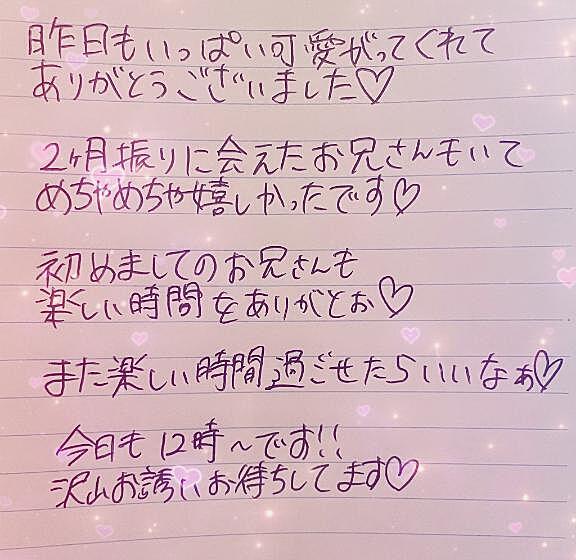 昨日もいっぱい可愛がってくれて
ありがとうございました♡
2ヶ月振りに会えたお兄さんもいて
めちゃめちゃ嬉しかったです♡
初めましてのお兄さんも
楽しい時間をありがとお♡
また楽しい時間過ごせたらいいなぁ♡
今日も12時~です!!
沢山お誘いお待ちしてます♡